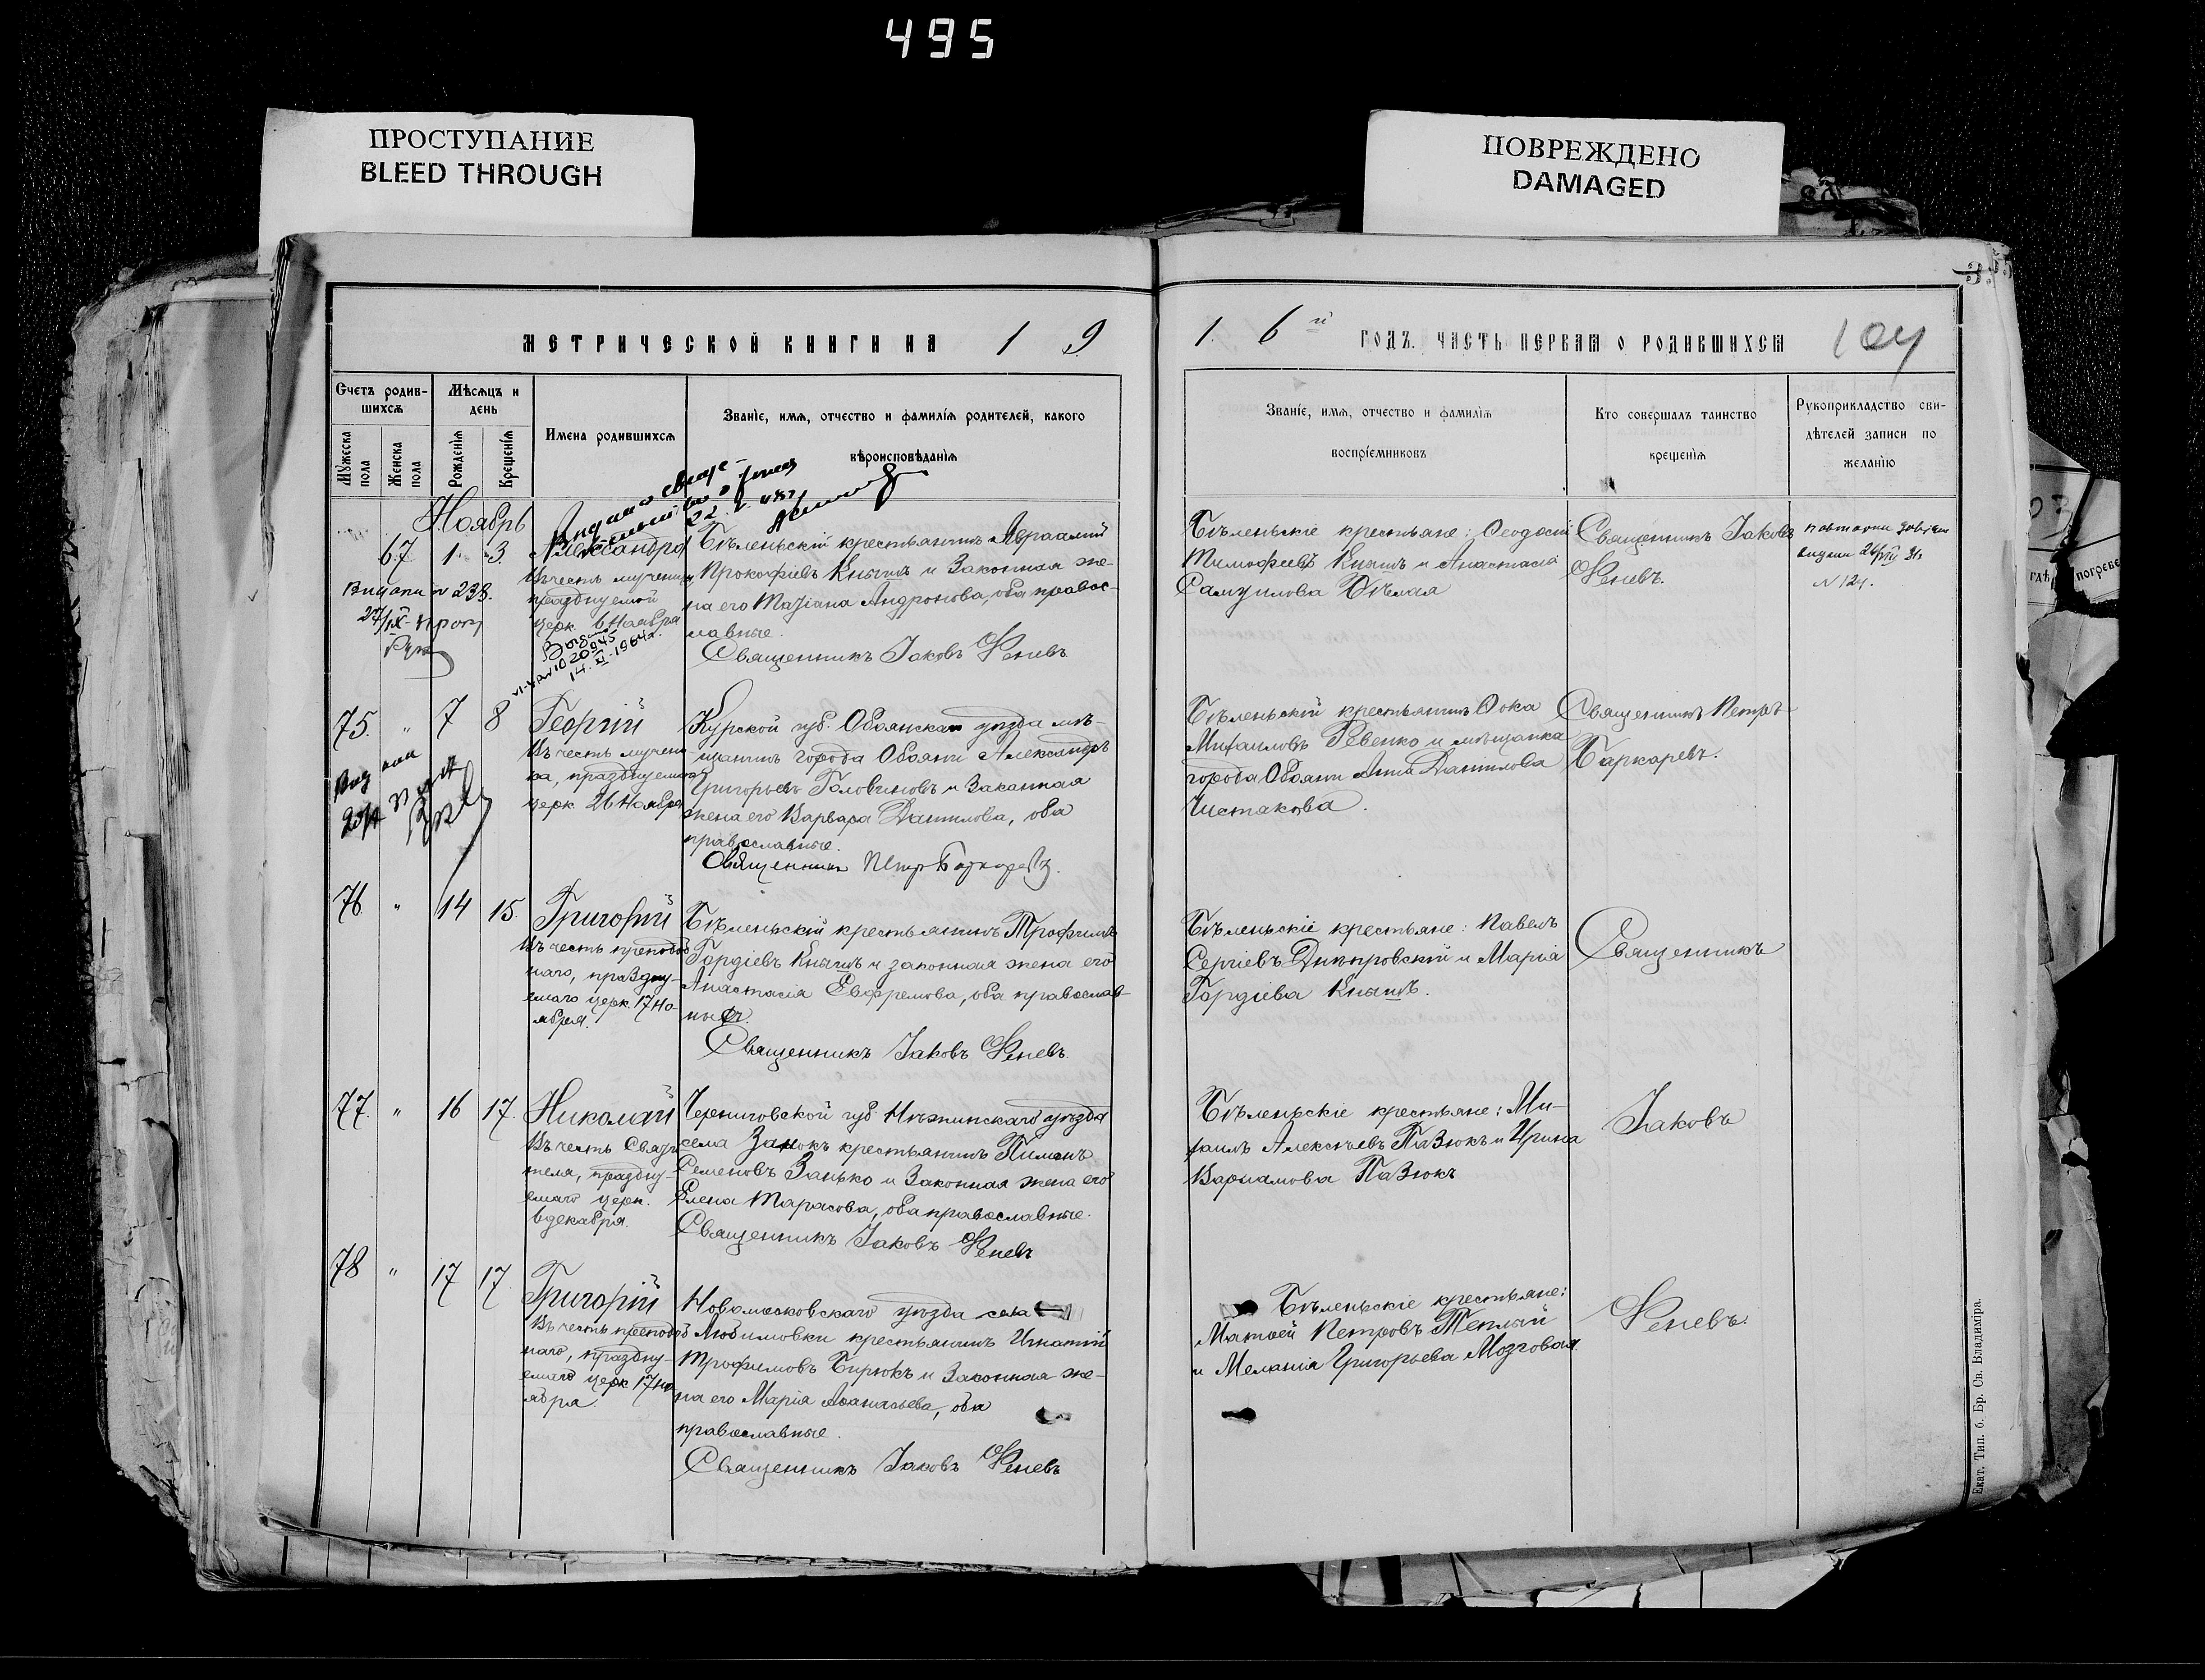 495
ПРОСТУПАНИЕ
BLEED THROUGH
ПОВРЕЖДЕНО
DAMAGED
МЕТРИЧЕСКОЙ КНИГИ НА 1 9
1. 6й ГОДЪ. ЧАСТЬ ПЕРВАЯ О РОДИВШИХСЯ
104
Счетъ родив-
шихсѧ
Мѣсѧцъ и
день
Мужеска
пола
Женска
пола
Рожденія
Крещенія
Имена родившихсѧ
Званіе, имѧ, отчество и фамиліѧ родителей, какого
вѣроисповѣданіѧ
Званіе, имѧ, отчество и фамиліѧ
воспріемниковъ
Кто совершалъ таинство
крещеніѧ
Рукоприкладство сви-
дѣтелей записи по
желанію
Ноябрь
67 1 3.
Александра
Въ честь мучениц
празднуемой
церк 6 Ноября
Бѣленьскій крестьянинъ Авраамій
Прокофіевъ Кнышъ и Законная же-
на его Татіана Андронова, оба правос-
лавные.
Священникъ Іаковъ Реневъ
Бѣленьскіе крестьяне: Ѳеодосій
Тимофеевъ Кнышъ и Анастасія
Самуилова Бѣлая
Священникъ Іаковъ
Реневъ.
Видана № 238.
14.XI-1964г.
№ 124.
75. " 7 8
Георгій
Въ честь мучени-
ка, празднуемаго
церк 26 Ноября
Курской губ. Обоянскаго уѣзда мѣ-
щанинъ города Обояни Александръ
Григорьевъ Головиновъ и Законная
жена его Варвара Данилова, оба
православные.
Священникъ Петръ Баткаревъ.
Бѣленьскій крестьянинъ Ѳока
Михаиловъ Ревенко и мѣщанка
города Обояни Анна Данилова
Чистакова.
Священникъ Петръ
Баткаревъ.
76. " 14 15.
Григорій
Въ честь преподоб
наго, праздну-
емаго церк 17 Но-
ября.
Бѣленьскій крестьянинъ Трофимъ
Гордіевъ Кнышъ и законная жена его
Анастасія Евфремова, оба православ-
ные.
Священникъ Іаковъ Реневъ.
Бѣленьскіе крестьяне: Павелъ
Сергіевъ Днѣпровскій и Марія
Гордіева Кнышъ.
Священникъ
77. " 16 17.
Николай
Въ честь Святи
теля, праздну-
емаго церк.
6 декабря.
Черниговской губ. Нѣжинскаго уѣзда
села Занокъ крестьянинъ Пименъ
Семеновъ Занько и Законная жена его
Елена Тарасова, оба православные.
Священникъ Іаковъ Реневъ
Бѣленьскіе крестьяне: Ми-
хаилъ Алексѣевъ Пазюкъ и Ирина
Варламова Пазюкъ
Іаковъ
78 " 17 17
Григорій
Въ честь преподоб
наго, праздну-
емаго церк 17 Но
ября.
Новомосковскаго уѣзда села
Любимовки крестьянинъ Игнатій
Трофимовъ Бирюкъ и Законная же-
на его Марія Аѳанасьева, оба
православные.
Священникъ Іаковъ Реневъ
Бѣленьскіе крестьяне:
Матѳей Петровъ Теплый
и Меланія Григорьева Мозговая.
Реневъ.
Екат. Тип. б. Бр. Св. Владиміра.